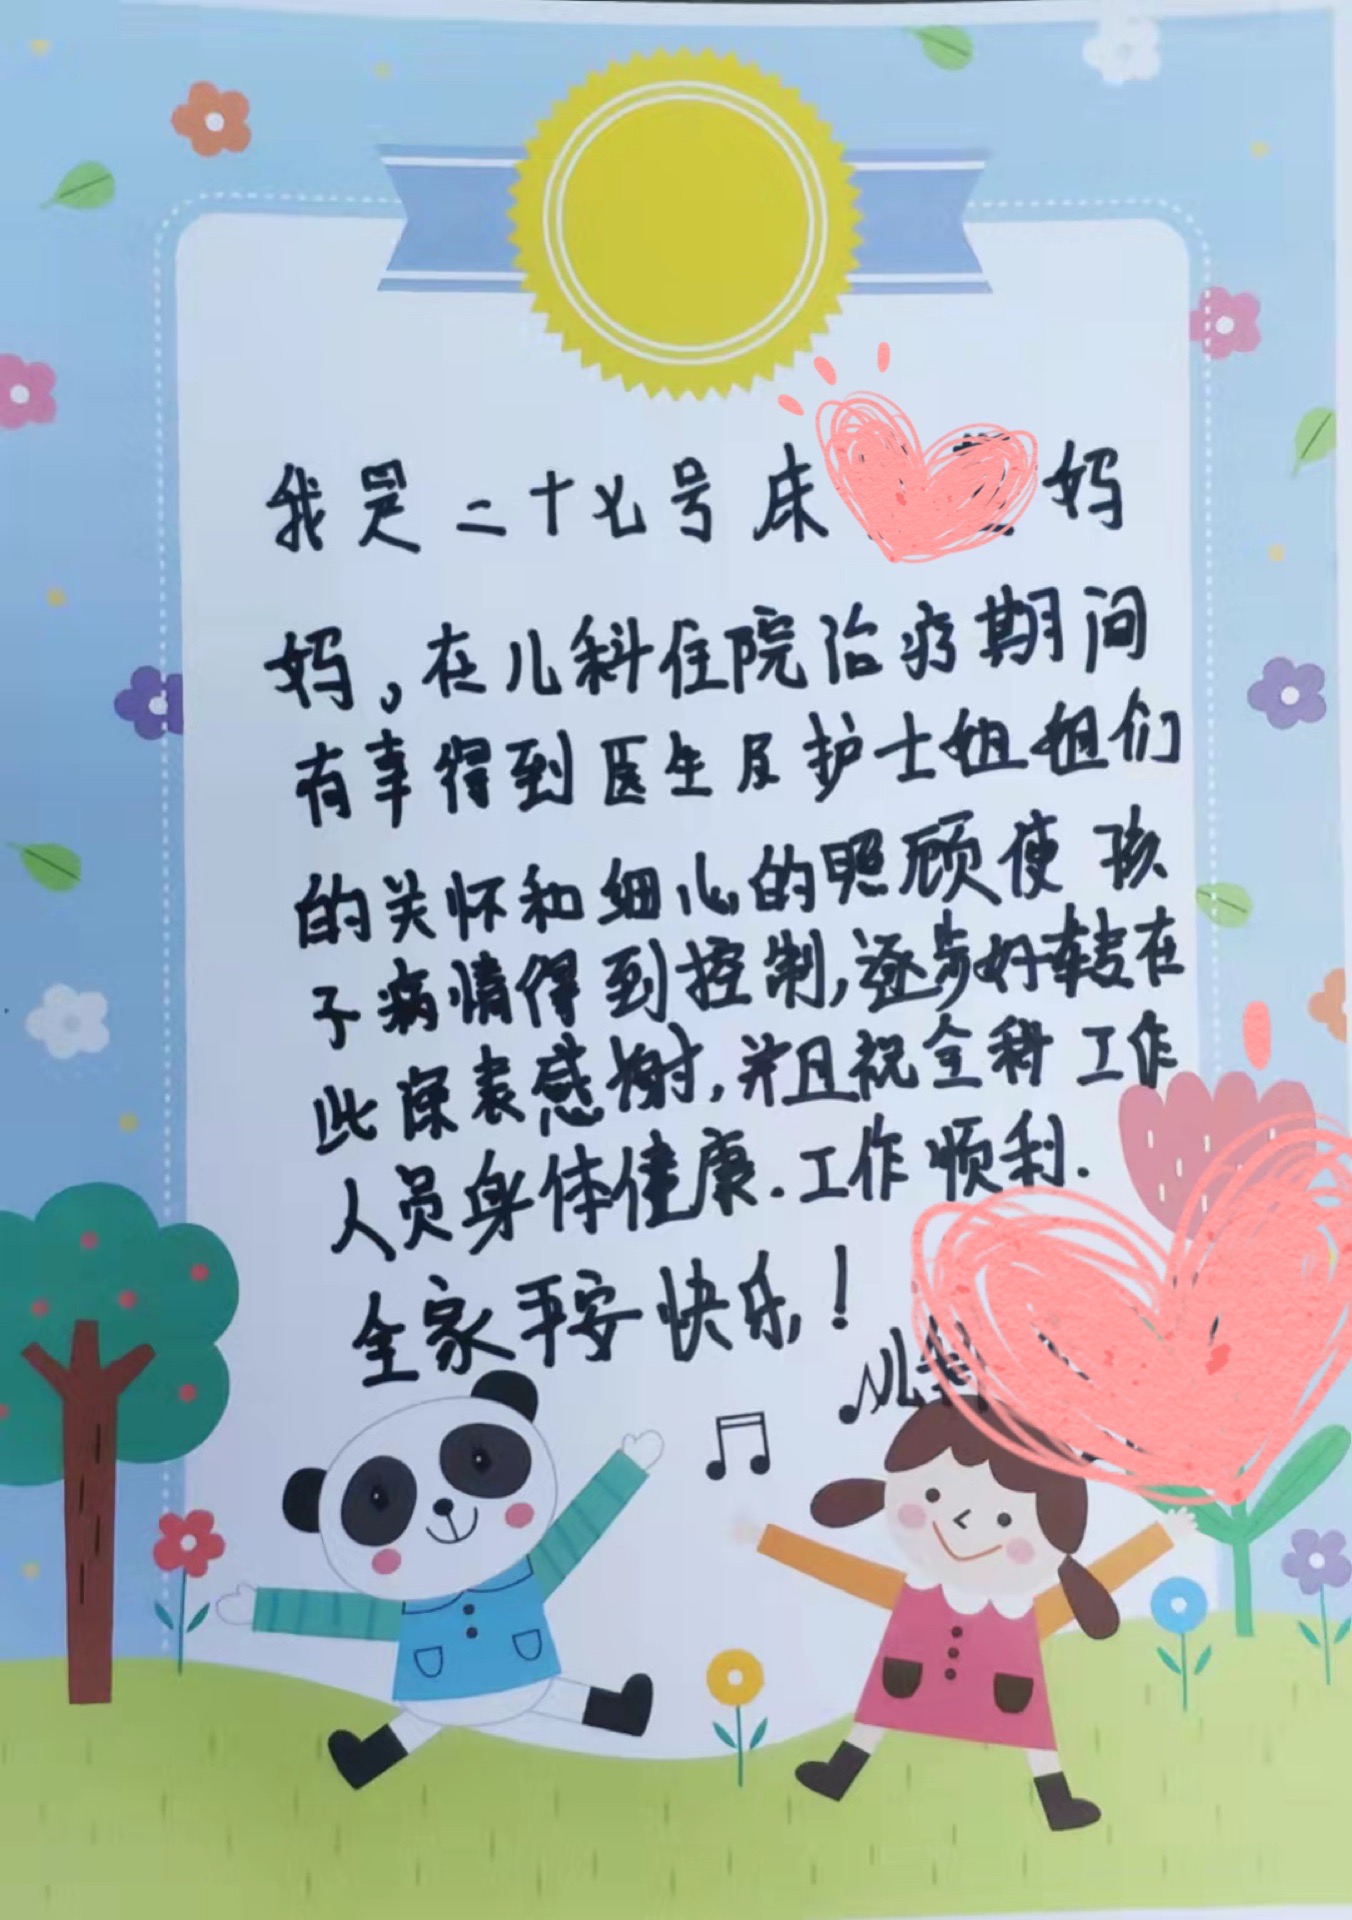 我是二十七号床 妈
妈,在儿科住院治疗期间
有幸得到医生及护士姐姐们
的关怀和细心的照顾使孩
子病情得到控制,逐步好转在
此深表感谢,并且祝全科工作
人员身体健康.工作顺利.
全家平安快乐!